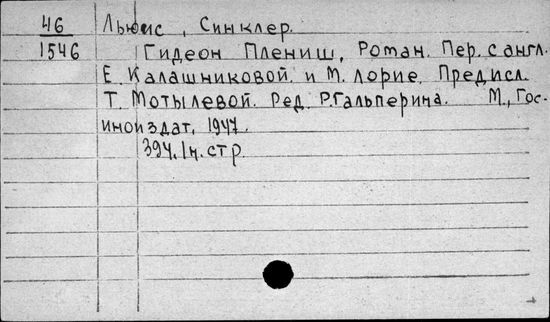 46 Льюис, Синклер.
1546 Гидеон Плениш, Роман. Пер. с англ.
Е. Калашниковой. и М. Лорие. Предисл.
Т. Мотылевой. Ред. Р.Гальперина. М., Гос.
иноиздат, 1947.
394. 1н. стр.